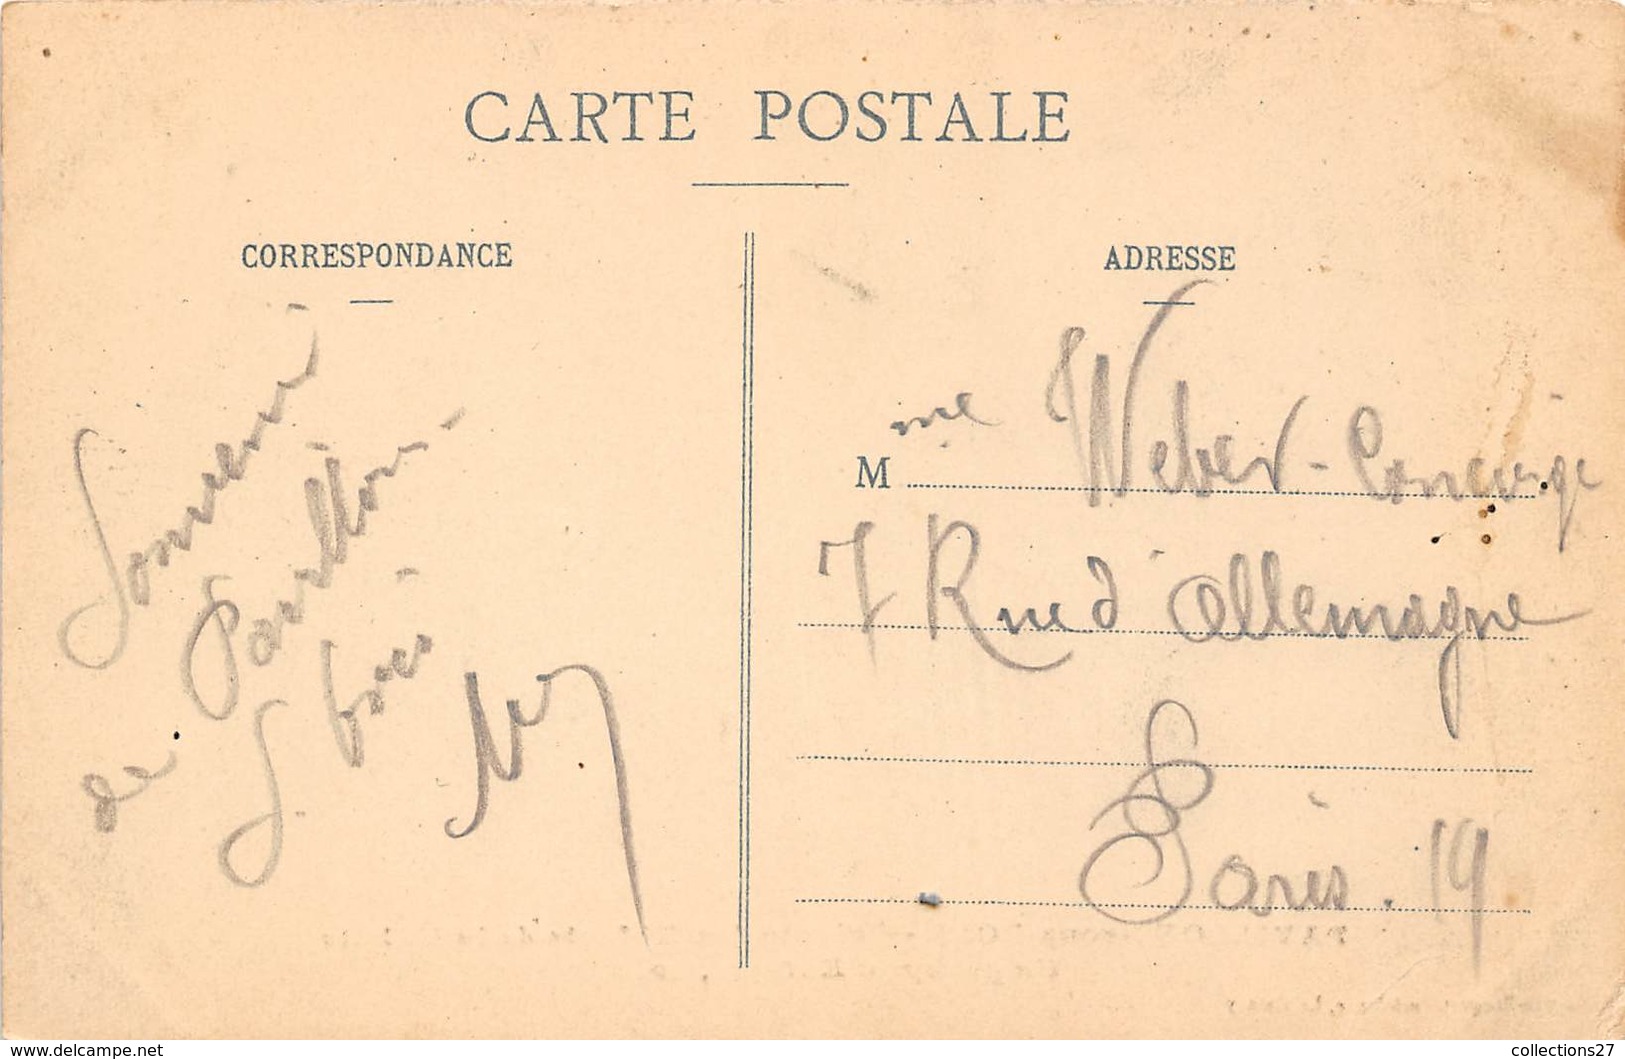 CARTE POSTALE
CORRESPONDANCE
Souvenir
de Pavillon
S
ADRESSE
Mme Weber - Concierge
7 Rue d'Allemagne
Paris. 19
collections27